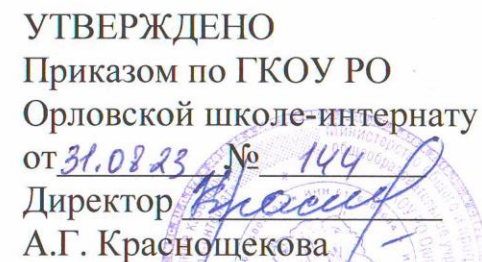 УТВЕРЖДЕНО
Приказом по ГКОУ РО
Орловской школе-интернату
от 31.08.23 № 144
Директор
А.Г. Краснощекова